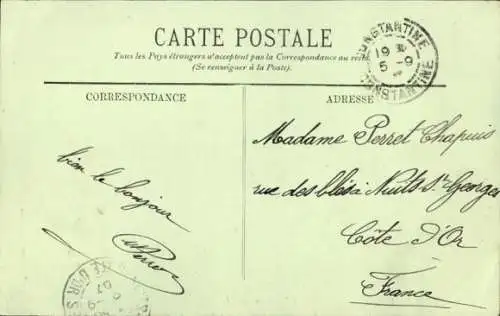 CARTE POSTALE
Tous les Pays étrangers n'acceptent pas la Correspondance au
(Se renseigner à la Poste).
CONSTANTINE
19
5 -9
CONSTANTINE
CORRESPONDANCE
ADRESSE
bien le bonjour
Madame Perret Chapuis
rue des blés à Nuits St Georges
Côte d'Or
France
CÔTE D'OR
07